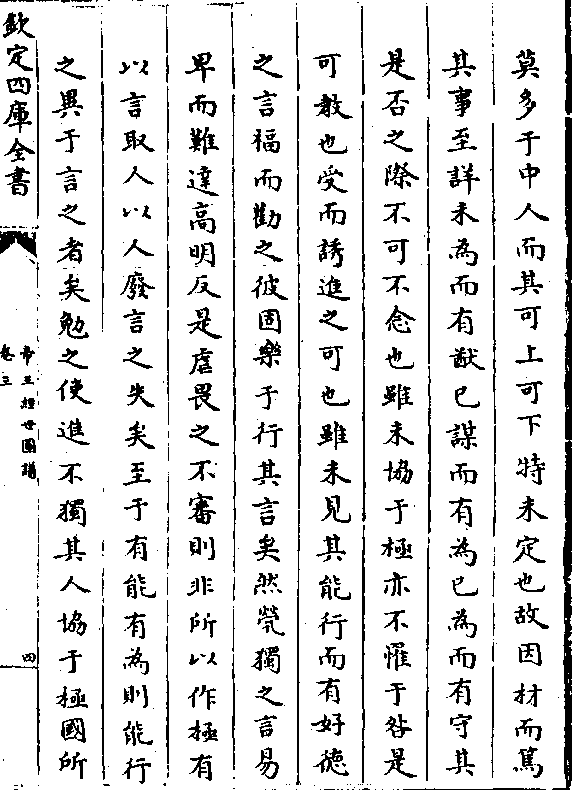 莫多于中人而其可上可下特未定也故因材而篤
其事至詳未為而有猷已謀而有為已為而有守其
是否之際不可不念也雖未協于極亦不罹于咎是
可教也受而誘進之可也雖未見其能行而有好德
之言福而勸之彼固樂于行其言矣然煢獨之言易
卑而難達高明反是虐畏之不審則非所以作極有
以言取人以人廢言之失矣至于有能有為則能行
之異于言之者矣勉之使進不獨其人協于極國所
欽定四庫全書
帝王經世圖譜
卷三
四